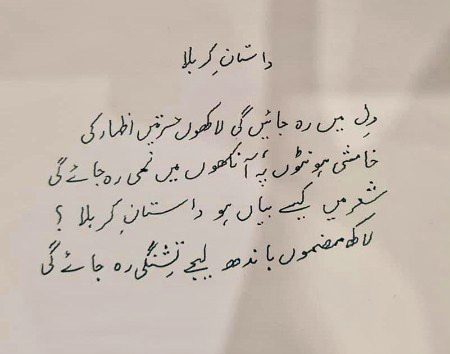 داستانِ کربلا
دِل میں رہ جائیں گی لاکھوں حسرتیں اظہار کی
خامشی ہونٹوں پہ آنکھوں میں نمی رہ جائے گی
شعر میں کیسے بیاں ہو داستانِ کربلا ؟
لاکھ مضموں باندھ لیجے تِشنگی رہ جائے گی